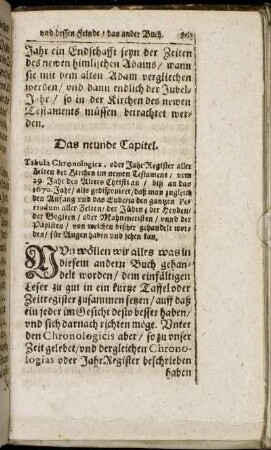 und dessen Feinde / das ander Buch. 863
Jahr ein Endschafft seyn der Zeiten
des neuen himlischen Adams / wann
sie mit dem alten Adam vergliechen
werden / und dann endlich der Jubel-
Jahr / so in der Kirchen des newen
Testaments müssen betrachtet wer-
den.
Das neunde Capitel.
Tabula Chronologica, oder Jahr Register aller
Zeiten der Kirchen im newen Testament / vom
29. Jahr des Alters Christi an / biß an das
1670. Jahr / also gedisponiret, daß man zugleich
den Anfang und das Ende in den gantzen Pe-
riodum aller Zeiten / der Jüden / der Heyden /
der Gogiten / oder Mahumetisten / und der
Papisten / von welchen bißher gehandelt wor-
den / für Augen haben und sehen kan.
NUn wöllen wir alles was in
diesem andern Buch gehan-
delt worden / dem einfältigen
Leser zu gut in ein kurtze Taffel oder
Zeitregister zusammen setzen / auff daß
ein jeder im Gesicht desto besser haben /
und sich darnach richten möge. Unter
den Chronologicis aber / so zu unser
Zeit gelebet / und dergleichen Chrono-
logias oder Jahr Register beschrieben
haben